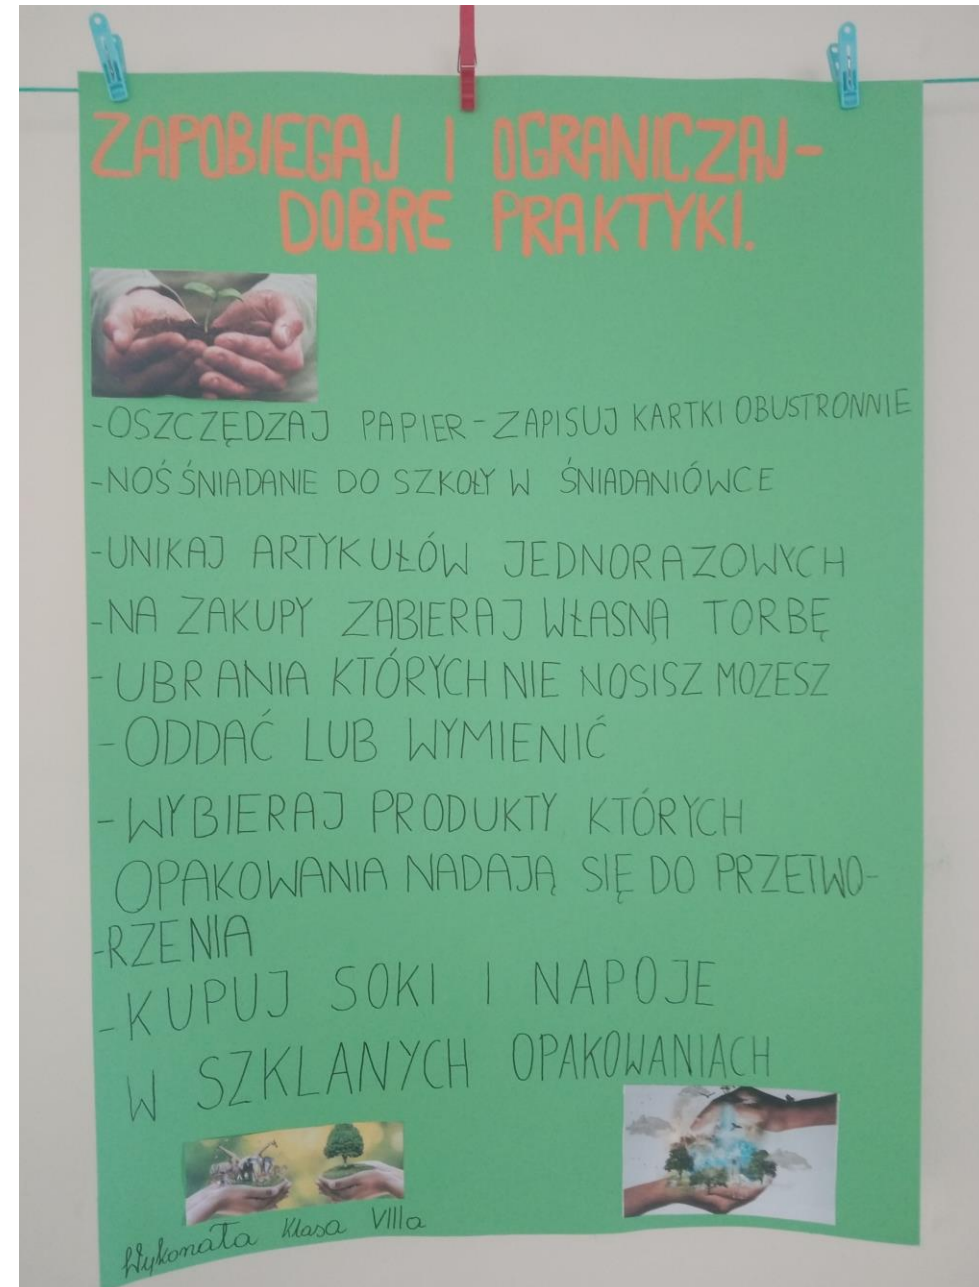 ZAPOBIEGAJ I OGRANICZAJ-
DOBRE PRAKTYKI.
-OSZCZĘDZAJ PAPIER-ZAPISUJ KARTKI OBUSTRONNIE
-NOŚ ŚNIADANIE DO SZKOŁY W ŚNIADANIÓWCE
-UNIKAJ ARTYKUŁÓW JEDNORAZOWYCH
-NA ZAKUPY ZABIERAJ WŁASNĄ TORBĘ
-UBRANIA KTÓRYCH NIE NOSISZ MOZESZ
-ODDAĆ LUB WYMIENIĆ
-WYBIERAJ PRODUKTY KTÓRYCH
OPAKOWANIA NADAJĄ SIĘ DO PRZETWO-
-RZENIA
-KUPUJ SOKI I NAPOJE
W SZKLANYCH OPAKOWANIACH
Wykonała Klasa VIIIa